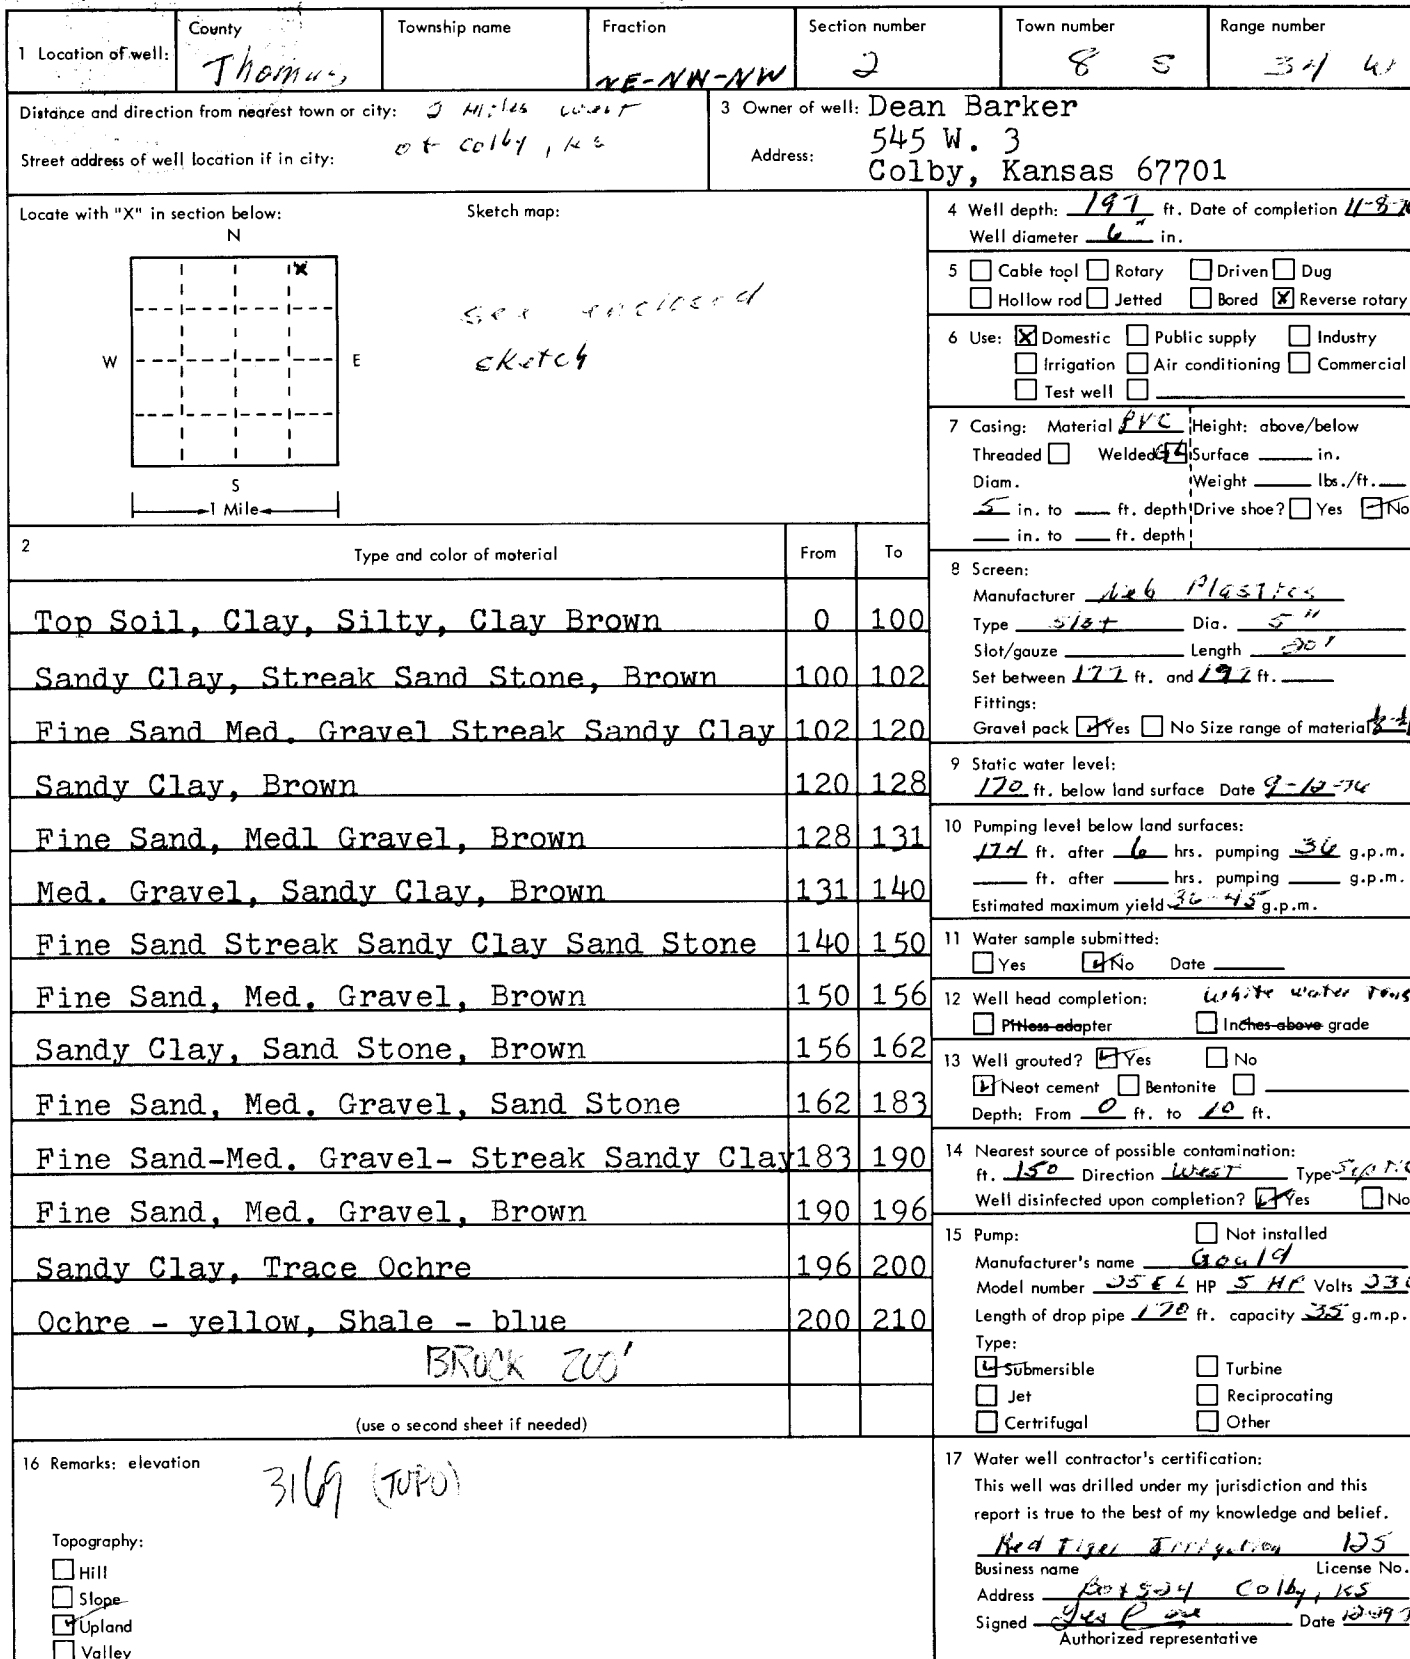 County Township name Fraction Section number Town number Range number
1 Location of well: Thomas NE-NW-NW 2 8 S 34 W
Distance and direction from nearest town or city: Miles west
of Colby, KS
Street address of well location if in city:
3 Owner of well: Dean Barker
Address: 545 W. 3
Colby, Kansas 67701
Locate with "X" in section below:
N
W E
S
1 Mile
Sketch map:
see enclosed
sketch
2 Type and color of material From To
Top Soil, Clay, Silty, Clay Brown 0 100
Sandy Clay, Streak Sand Stone, Brown 100 102
Fine Sand Med. Gravel Streak Sandy Clay 102 120
Sandy Clay, Brown 120 128
Fine Sand, Medl Gravel, Brown 128 131
Med. Gravel, Sandy Clay, Brown 131 140
Fine Sand Streak Sandy Clay Sand Stone 140 150
Fine Sand, Med. Gravel, Brown 150 156
Sandy Clay, Sand Stone, Brown 156 162
Fine Sand, Med. Gravel, Sand Stone 162 183
Fine Sand-Med. Gravel- Streak Sandy Clay 183 190
Fine Sand, Med. Gravel, Brown 190 196
Sandy Clay, Trace Ochre 196 200
Ochre - yellow, Shale - blue 200 210
BROCK 200'
(use o second sheet if needed)
16 Remarks: elevation 3169 (TOPO)
Topography:
Hill
Slope
Upland
Valley
4 Well depth: 197 ft. Date of completion 11-8-
Well diameter 6" in.
5 Cable tool Rotary Driven Dug
Hollow rod Jetted Bored X Reverse rotary
6 Use: X Domestic Public supply Industry
Irrigation Air conditioning Commercial
Test well
7 Casing: Material PVC Height: above/below
Threaded Welded GL Surface in.
Diam. Weight lbs./ft.
5 in. to ft. depth Drive shoe? Yes No
in. to ft. depth
8 Screen:
Manufacturer Neb Plastics
Type Slot Dia. 5"
Slot/gauze Length 20'
Set between 177 ft. and 197 ft.
Fittings:
Gravel pack Yes No Size range of material
9 Static water level:
170 ft. below land surface Date 9-12-76
10 Pumping level below land surfaces:
174 ft. after 6 hrs. pumping 36 g.p.m.
ft. after hrs. pumping g.p.m.
Estimated maximum yield 36-45 g.p.m.
11 Water sample submitted:
Yes No Date
12 Well head completion: White water
Pitless adapter Inches above grade
13 Well grouted? Yes No
Neat cement Bentonite
Depth: From 0 ft. to 10 ft.
14 Nearest source of possible contamination:
ft. 150 Direction West Type Septic
Well disinfected upon completion? Yes No
15 Pump: Not installed
Manufacturer's name Gould
Model number 25EL HP 5 HP Volts 230
Length of drop pipe 170 ft. capacity 35 g.m.p.
Type:
Submersible Turbine
Jet Reciprocating
Certrifugal Other
17 Water well contractor's certification:
This well was drilled under my jurisdiction and this
report is true to the best of my knowledge and belief.
Red Tiger Irrigation 125
Business name License No.
Address Box 524 Colby, KS
Signed Date
Authorized representative